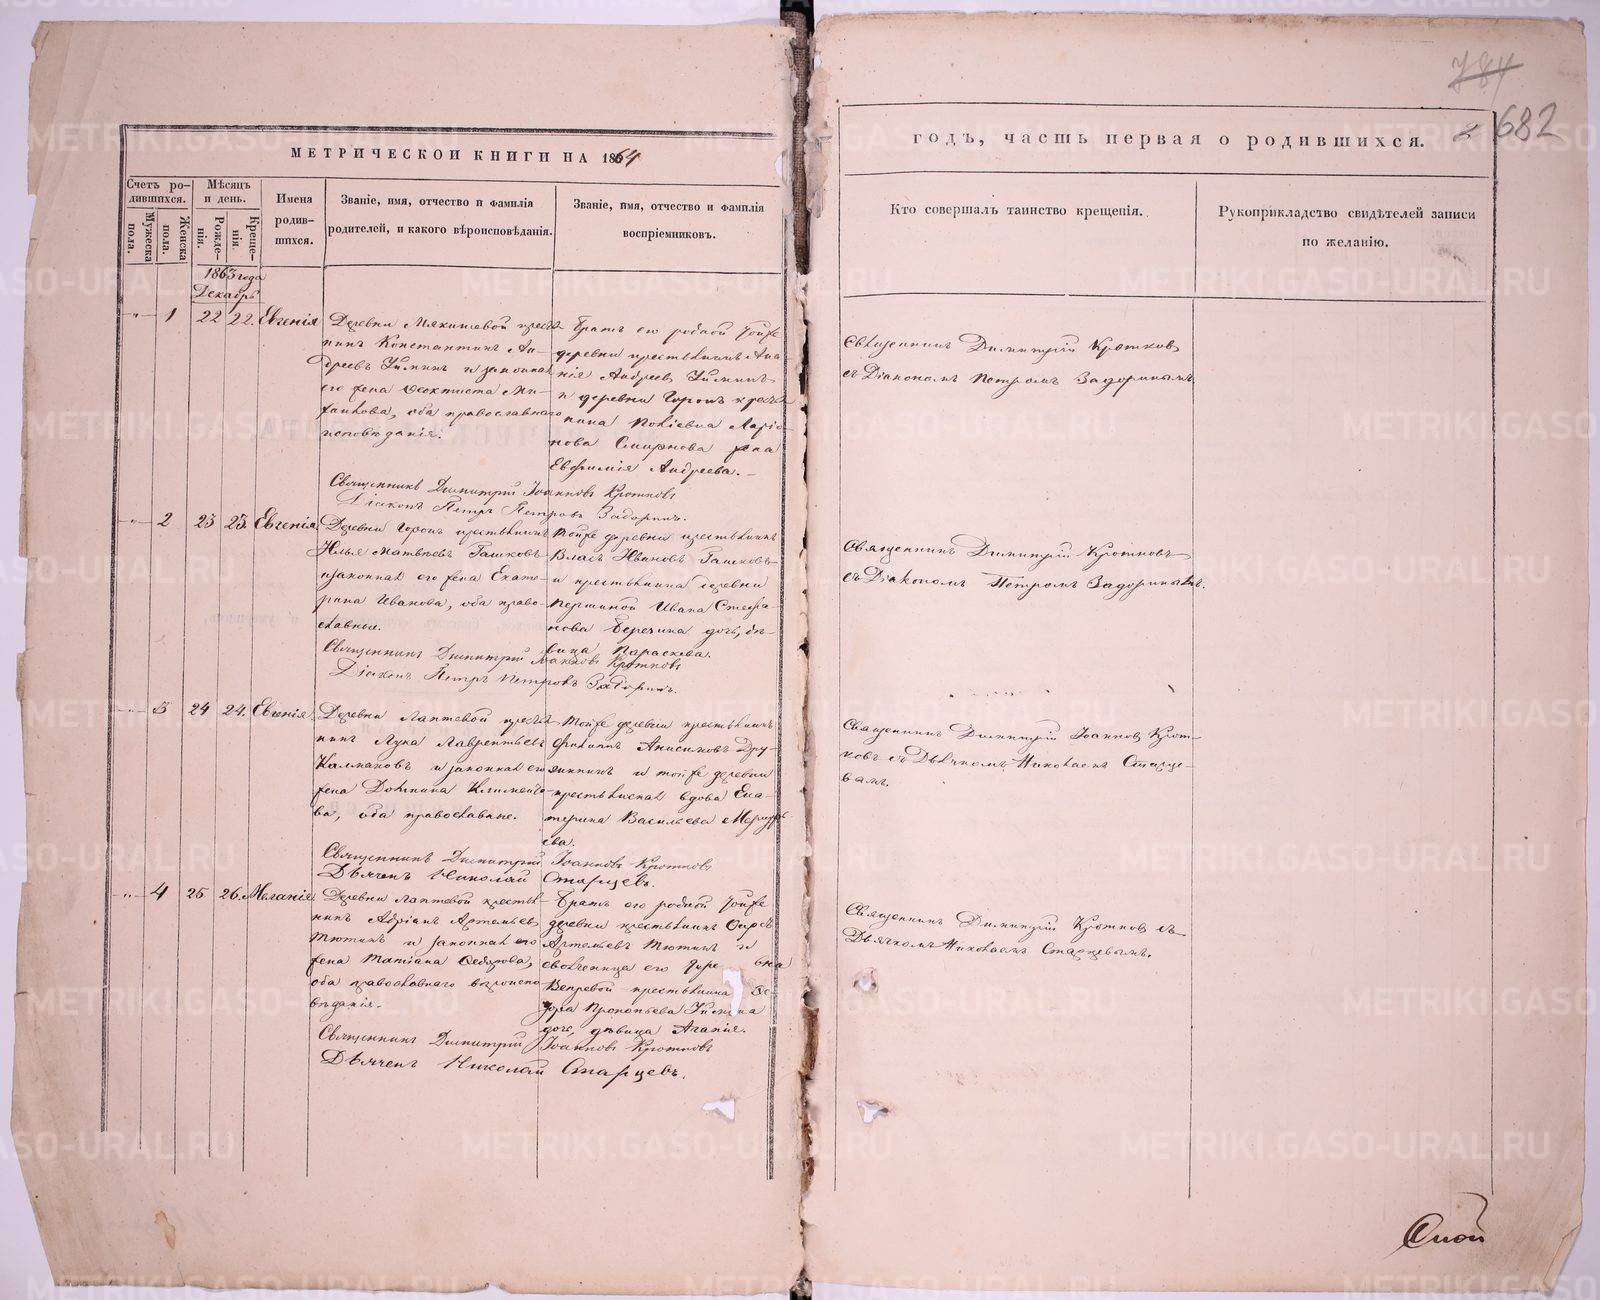 784
682
МЕТРИЧЕСКОЙ КНИГИ НА 1864
годъ, часть первая о родившихся.
Счетъ родившихся.
Мужеска пола.
Женска пола.
Мѣсяцъ и день.
Рожденія.
Крещенія.
Имена родившихся.
Званіе, имя, отчество и фамилія
родителей, и какого вѣроисповѣданія.
Званіе, имя, отчество и фамилія
воспріемниковъ.
Кто совершалъ таинство крещенія.
Рукоприкладство свидѣтелей записи
по желанію.
1863 года
Декабрь
1 22 22. Евгенія
Деревни крестья-
нинъ Константинъ Ан-
дреевъ и законная
его жена Феоктиста Ми-
хаилова, оба православнаго
исповѣданія.
Братъ его родной тойже
деревни крестьянинъ Ана-
нія Андреевъ
и деревни Горокъ крестья-
нина Ларіо-
нова Смирнова жена
Евфимія Андреева.
Священникъ Димитрій Іоанновъ Кротковъ
Діаконъ Петръ Петровъ Задоринъ.
Священникъ Димитрій Кротковъ
съ Діакономъ Петромъ Задоринымъ
2 23 23. Евгенія
Деревни крестьянинъ
Илья Матвѣевъ Гашковъ
и законная его жена Екате-
рина Иванова, оба право-
славные.
Тойже деревни крестьянинъ
Власъ Ивановъ Гашковъ
и крестьянина деревни
Першиной Ивана Стефа-
нова дочь, дѣ-
вица Параскева.
Священникъ Димитрій Іоанновъ Кротковъ
Діаконъ Петръ Петровъ Задоринъ.
Священникъ Димитрій Кротковъ
съ Діакономъ Петромъ Задоринымъ.
3 24 24. Евгенія
Деревни Лаптевой крестья-
нинъ Лука Лаврентьевъ
Калмаковъ и законная его
жена Домнина Климен-
ва, оба православные.
Тойже деревни крестьянинъ
Филиппъ Анисимовъ Дру-
жининъ и тойже деревни
крестьянская вдова Ека-
терина Васильева
ева.
Священникъ Димитрій Іоанновъ Кротковъ
Дьячекъ Николай Старцевъ.
Священникъ Димитрій Іоанновъ Крот-
ковъ съ Дьячкомъ Николаемъ Старце-
вымъ.
4 25 26. Меланія
Деревни Лаптевой крестья-
нинъ Адріанъ Артемьевъ
Тютинъ и законная его
жена Татіана Федорова,
оба православнаго вѣроиспо-
вѣданія.
Братъ его родной тойже
деревни крестьянинъ
Артемьевъ Тютинъ и
свояченица его
Вепревой крестьянина Фе-
дора Прокопьева
дочь, дѣвица Агапія.
Священникъ Димитрій Іоанновъ Кротковъ
Дьячекъ Николай Старцевъ.
Священникъ Димитрій Кротковъ съ
Дьячкомъ Николаемъ Старцевымъ.
METRIKI.GASO-URAL.RU